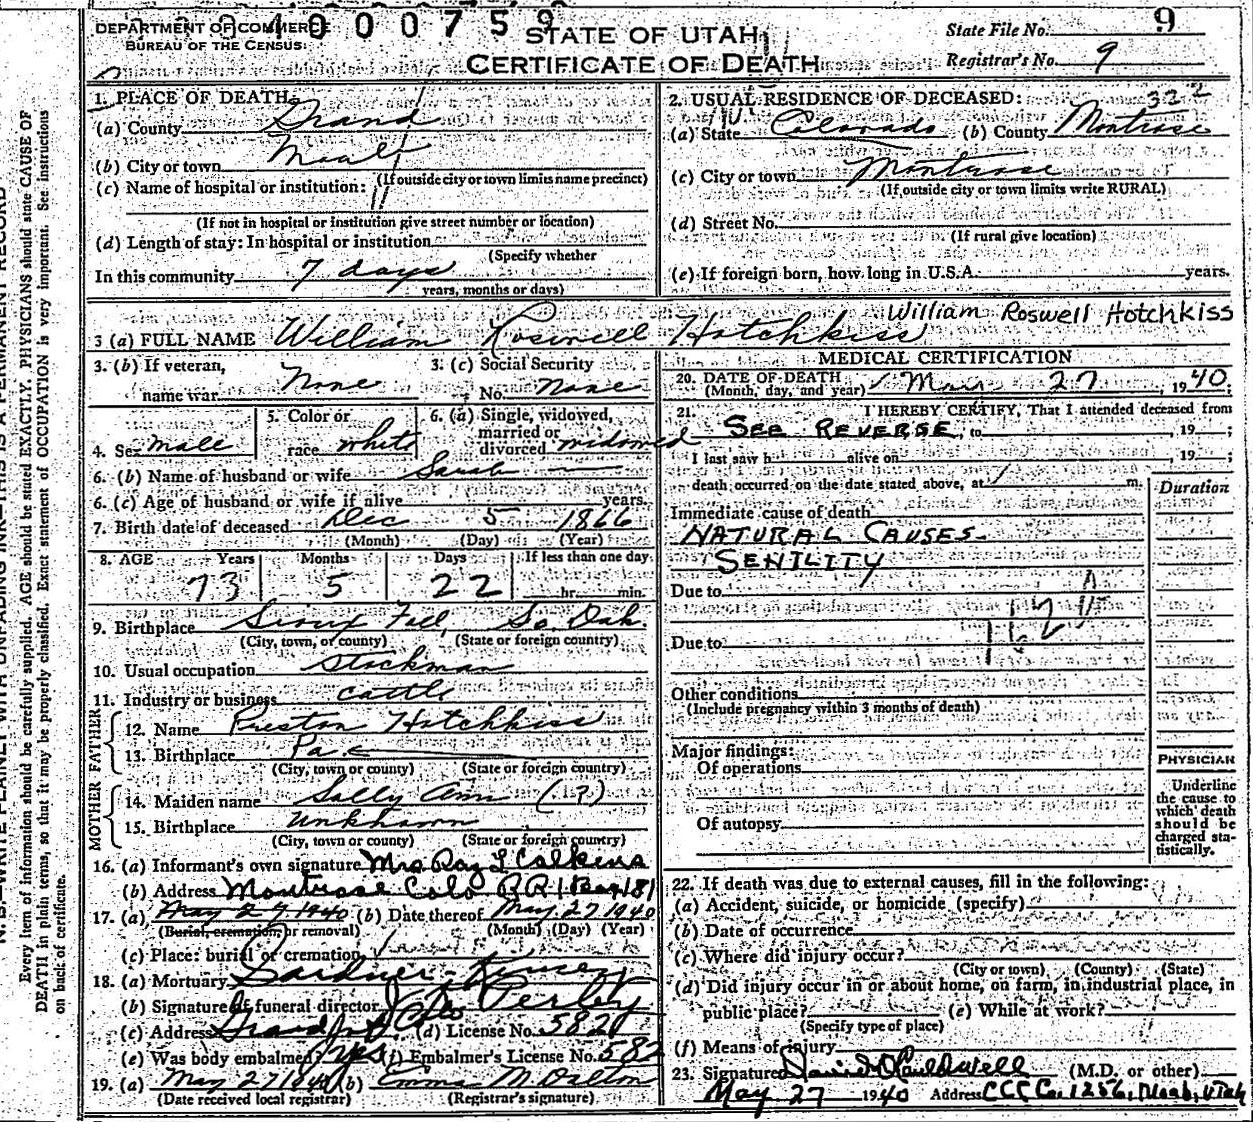 DEPARTMENT OF COMMERCE
BUREAU OF THE CENSUS
4 0 0 0 7 5 9
STATE OF UTAH
CERTIFICATE OF DEATH
State File No. 9
Registrar's No. 9
1. PLACE OF DEATH:
(a) County Grand
(b) City or town Moab
(If outside city or town limits name precinct)
(c) Name of hospital or institution:
(If not in hospital or institution give street number or location)
(d) Length of stay: In hospital or institution
(Specify whether
In this community 7 days
years, months or days)
2. USUAL RESIDENCE OF DECEASED: 322
(a) State Colorado (b) County Montrose
(c) City or town Montrose
(If outside city or town limits write RURAL)
(d) Street No.
(If rural give location)
(e) If foreign born, how long in U.S.A. years.
William Roswell Hotchkiss
3 (a) FULL NAME William Roswell Hotchkiss
3. (b) If veteran, name war None
3. (c) Social Security No. None
4. Sex male
5. Color or race white
6. (a) Single, widowed, married or divorced widowed
6. (b) Name of husband or wife Sarah
6. (c) Age of husband or wife if alive years.
7. Birth date of deceased Dec 5 1866
(Month) (Day) (Year)
8. AGE Years Months Days If less than one day
73 5 22 hr. min.
9. Birthplace Sioux Fall, So. Dak.
(City, town, or county) (State or foreign country)
10. Usual occupation Stockman
11. Industry or business cattle
FATHER
12. Name Preston Hotchkiss
13. Birthplace Pa
(City, town or county) (State or foreign country)
MOTHER
14. Maiden name Sally Ann (?)
15. Birthplace Unknown
(City, town or county) (State or foreign country)
16. (a) Informant's own signature Mrs Ray L Calkins
(b) Address Montrose Colo RR 1 Box 181
17. (a) May 27, 1940 (b) Date thereof May 27 1940
(Burial, cremation, or removal) (Month) (Day) (Year)
(c) Place: burial or cremation
18. (a) Mortuary
(b) Signature of funeral director Perley
(c) Address Grand Jct Colo (d) License No. 582
(e) Was body embalmed? yes (f) Embalmer's License No. 582
19. (a) May 27 1940 (b) Emma M. Dalton
(Date received local registrar) (Registrar's signature)
MEDICAL CERTIFICATION
20. DATE OF DEATH 27, 1940
(Month, day, and year)
21. I HEREBY CERTIFY, That I attended deceased from
SEE REVERSE, to , 19 ;
I last saw h alive on , 19 ;
death occurred on the date stated above, at m.
Duration
Immediate cause of death
NATURAL CAUSES
SENILITY
Due to
Due to
162
Other conditions
(Include pregnancy within 3 months of death)
Major findings:
Of operations
Of autopsy
PHYSICIAN
Underline
the cause to
which death
should be
charged sta-
tistically.
22. If death was due to external causes, fill in the following:
(a) Accident, suicide, or homicide (specify)
(b) Date of occurrence
(c) Where did injury occur?
(City or town) (County) (State)
(d) Did injury occur in or about home, on farm, in industrial place, in
public place? (e) While at work?
(Specify type of place)
(f) Means of injury
23. Signature (M.D. or other)
May 27 1940 Address CCC Co. 1256, Moab, Utah
Every item of information should be carefully supplied. AGE should be stated EXACTLY. PHYSICIANS should state CAUSE OF
DEATH in plain terms, so that it may be properly classified. Exact statement of OCCUPATION is very important. See instructions
on back of certificate.